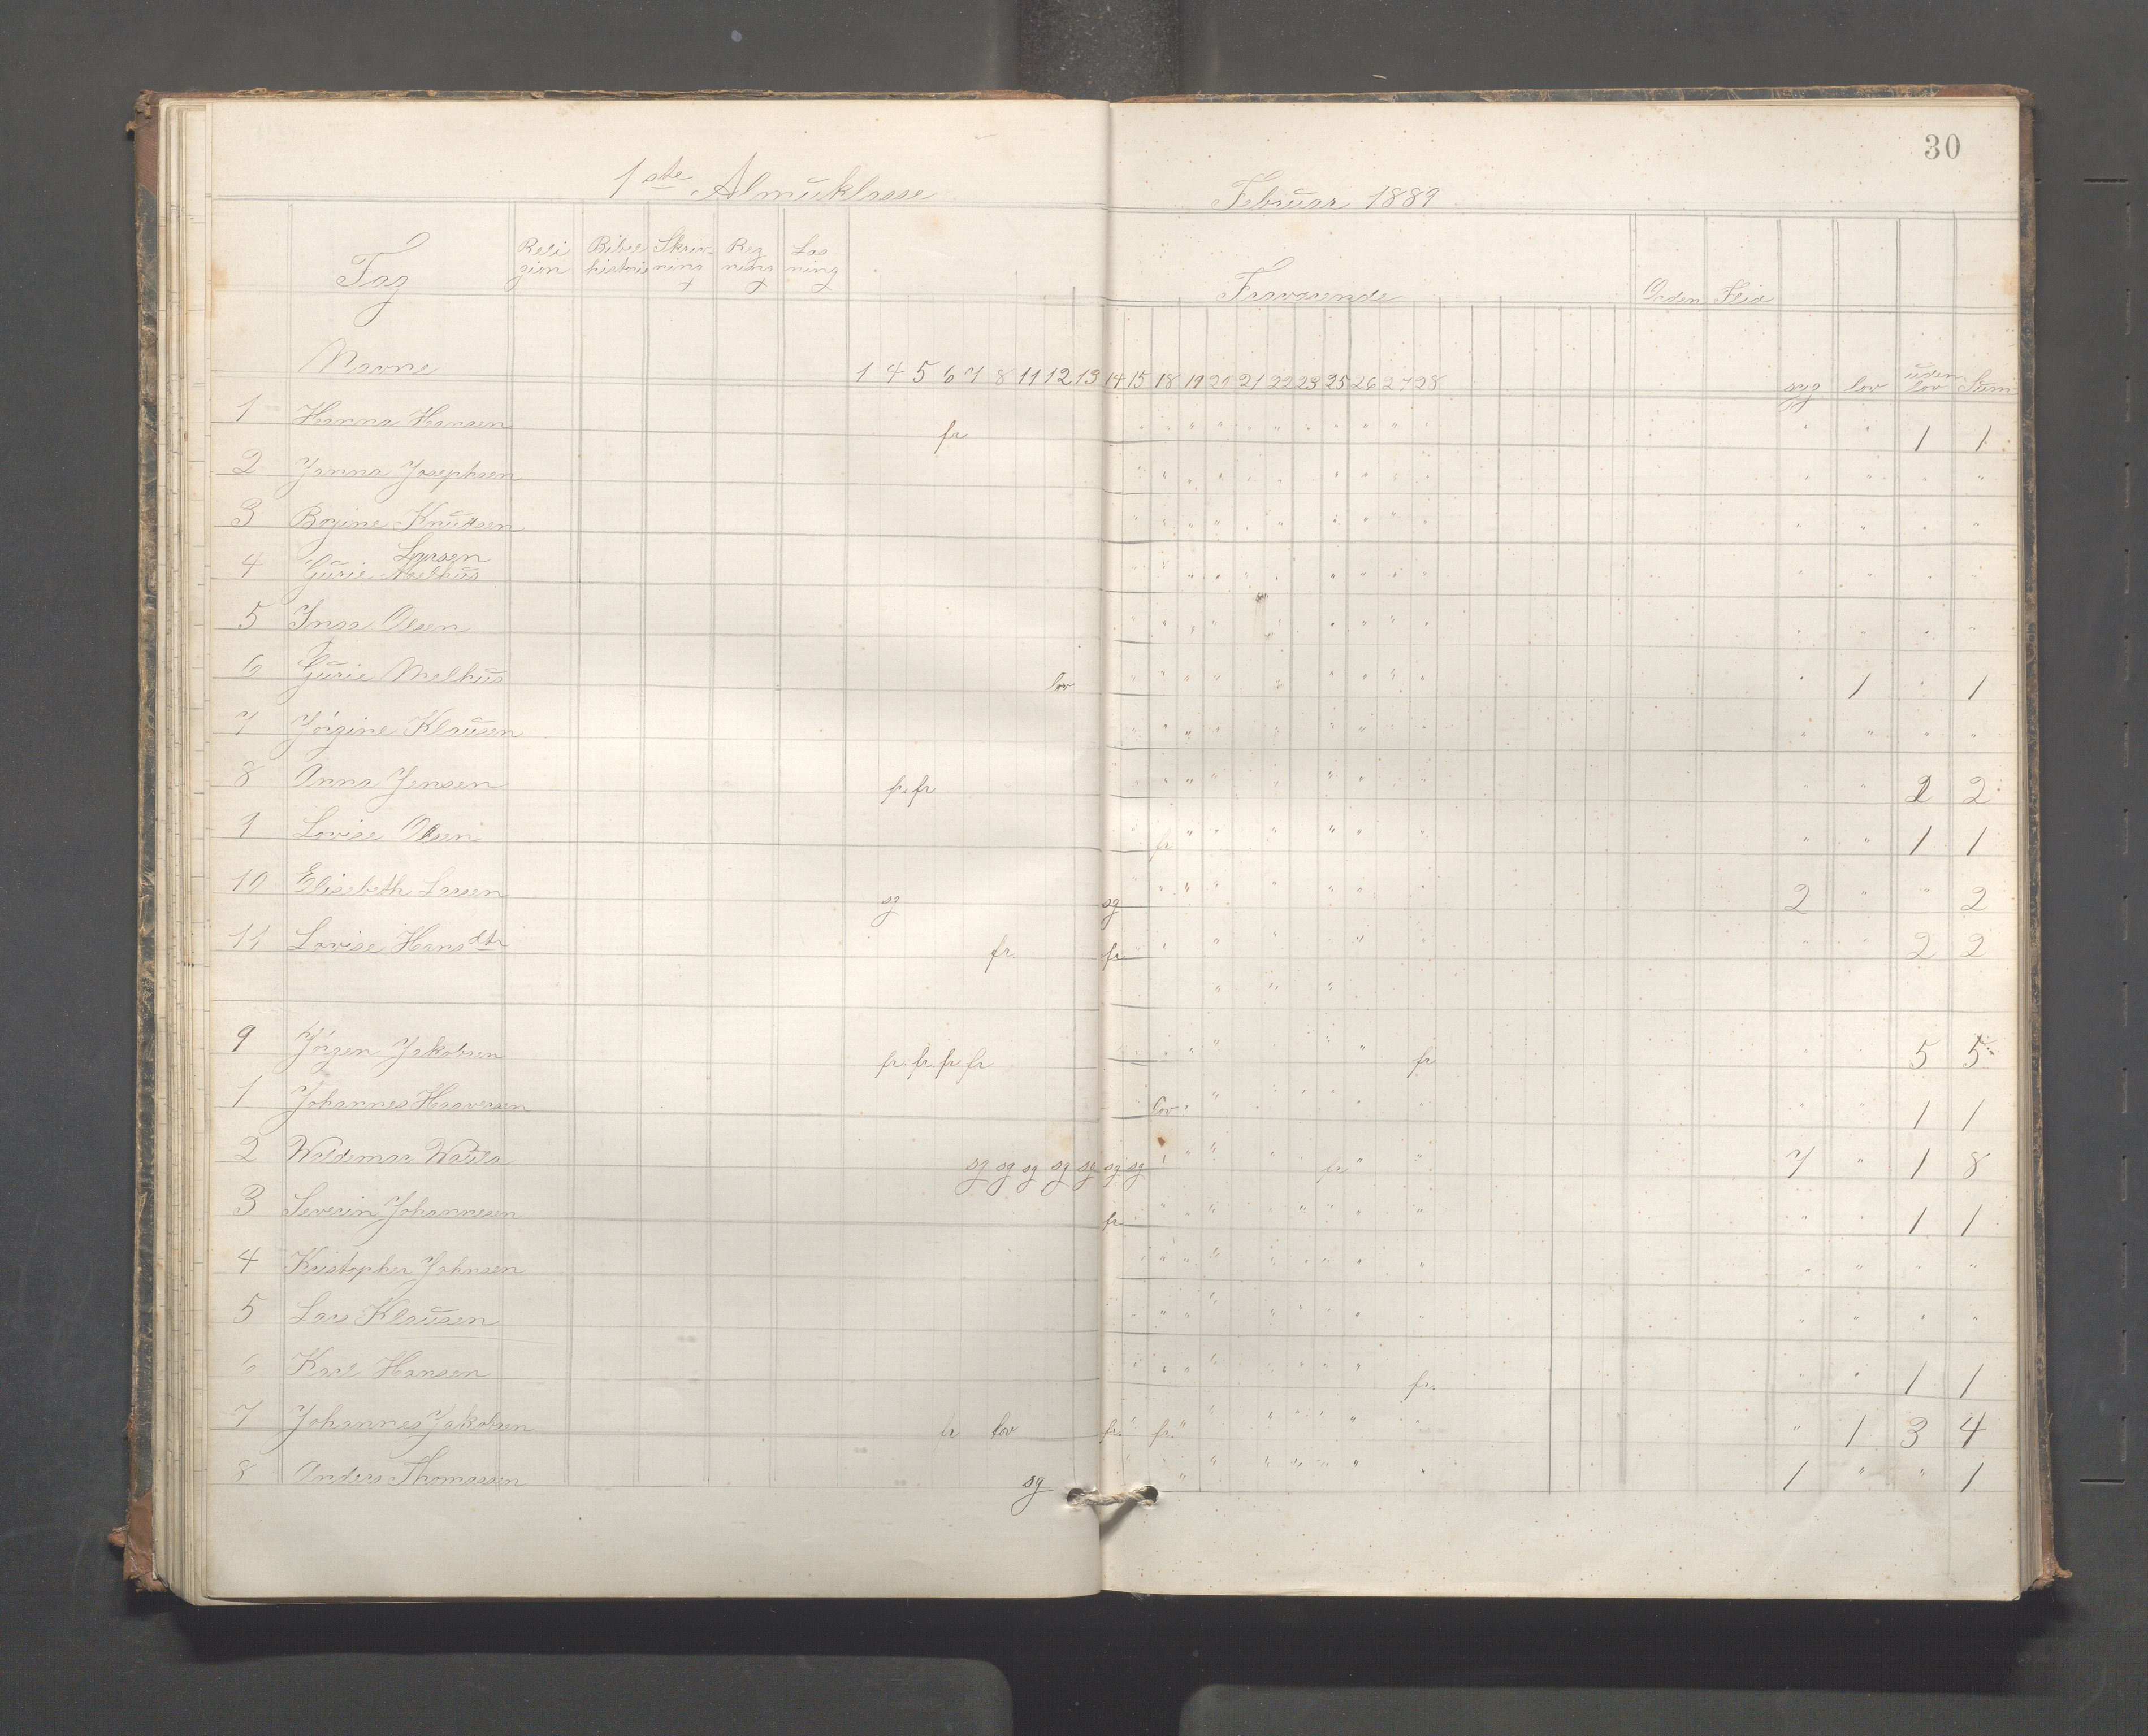 30
1ste Almuklasse Februar 1889
Fag Reli gion Bibel historie Skriv- ning Reg ning Læs ning Fraværende Orden Flid
Navne 1 4 5 6 7 8 11 12 13 14 15 18 19 20 21 22 23 25 26 27 28 syg lov uden lov Sum
1 Hanna Hansen fr " " 1 1
2 Janna Josephsen " " " "
3 Bogine Knutsen " " " "
Larsen
4 Gurie Melhus " " " "
5 Inga Olsen " " " "
6 Gurie Melhus lov " 1 " 1
7 Jörgine Klausen " " " "
8 Anna Jensen fr. fr " " 2 2
9 Lovise Olsen fr " " 1 1
10 Elisebeth Larsen sg sg 2 " " 2
11 Lovise Hansdtr fr fr " " 2 2
9 Jörgen Jakobsen fr. fr. fr fr fr " " 5 5
1 Johannes Haaversen lov " " 1 1
2 Waldemar sg sg sg sg sg sg sg fr 7 " 1 8
3 Severin Johannesen fr " " 1 1
4 Kristopher Johnsen " " " "
5 Lars Klausen " " " "
6 Karl Hansen fr. " " 1 1
7 Johannes Jakobsen fr lov fr. fr. " 1 3 4
8 Anders Thomassen sg 1 " " 1